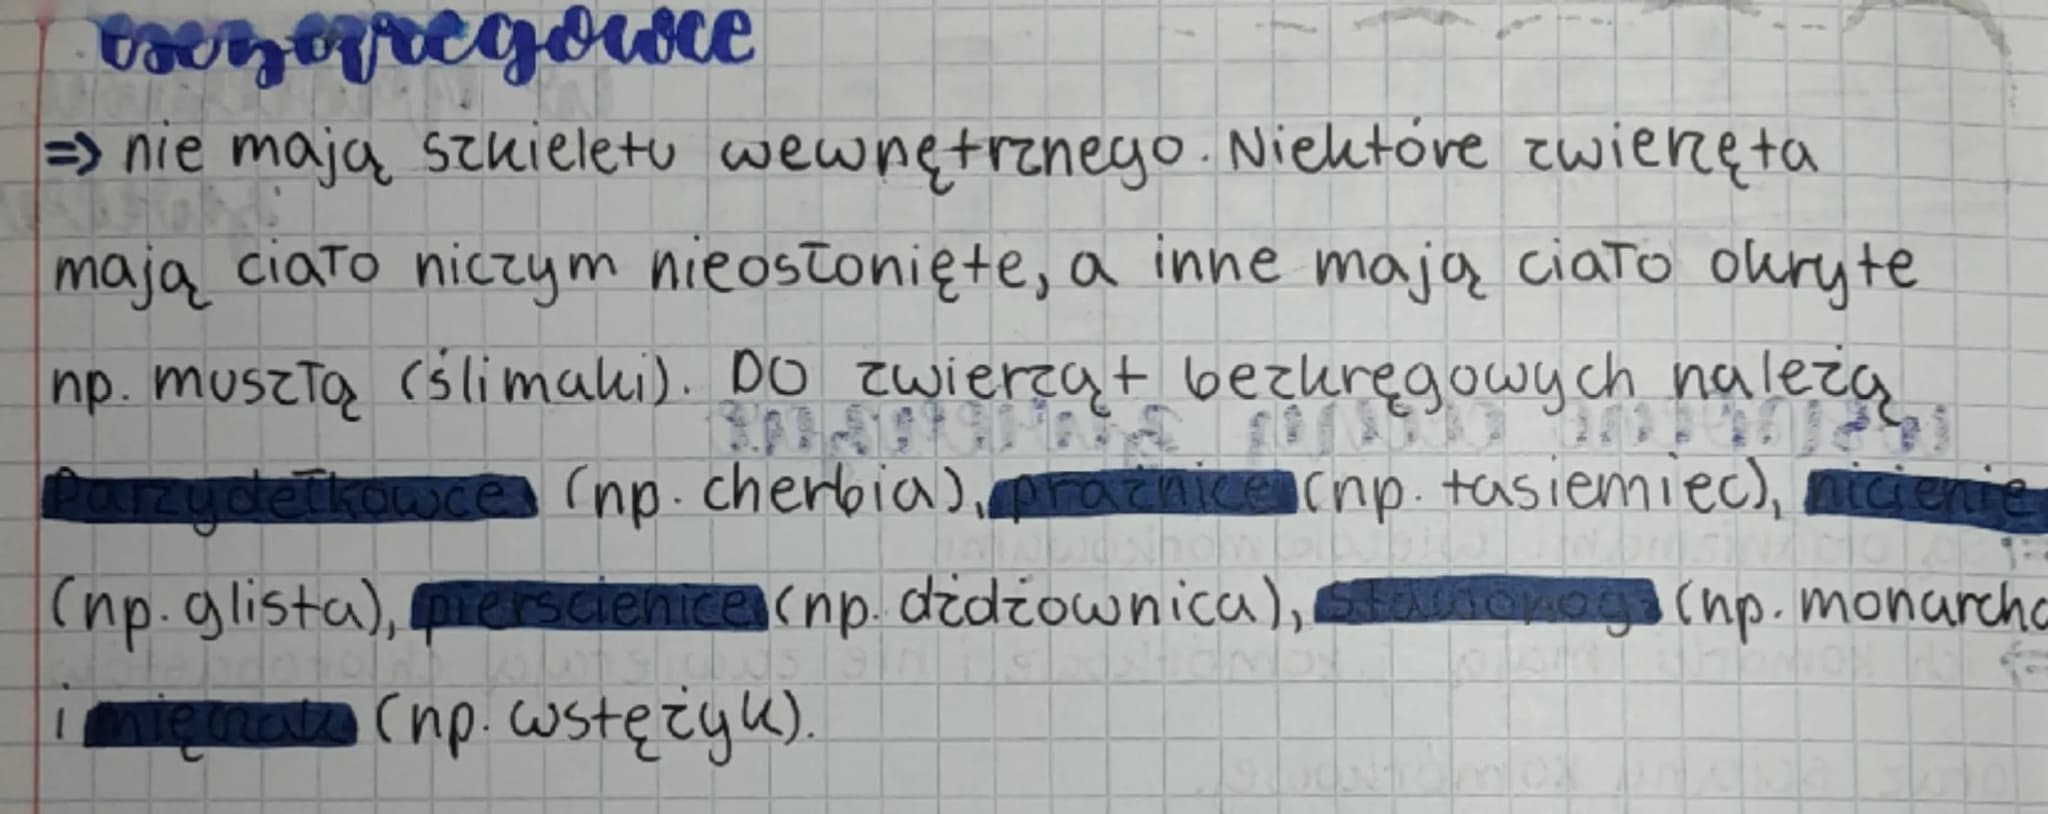 => nie mają szkieletu wewnętrznego. Niektóre zwierzęta
mają ciało niczym nieosłonięte, a inne mają ciało okryte
np. muszłą (ślimaki). Do zwierząt bezkręgowych należą
Parzydełkowce (np. cherbia), prażnice (np. tasiemiec), nicienie
(np. glista), pierscienice (np. dżdżownica), (np. monarcha
i (np. wstężyk).